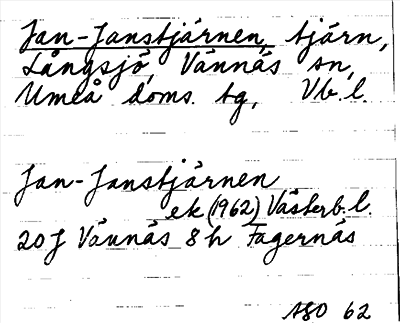 Jan-Janstjärnen, tjärn,
Långsjö, Vännäs sn,
Umeå doms. tg, Vb.l.
Jan-Janstjärnen
ek (1962) Västerb.l.
20J Vännäs 8h Fagernäs
ASO 62